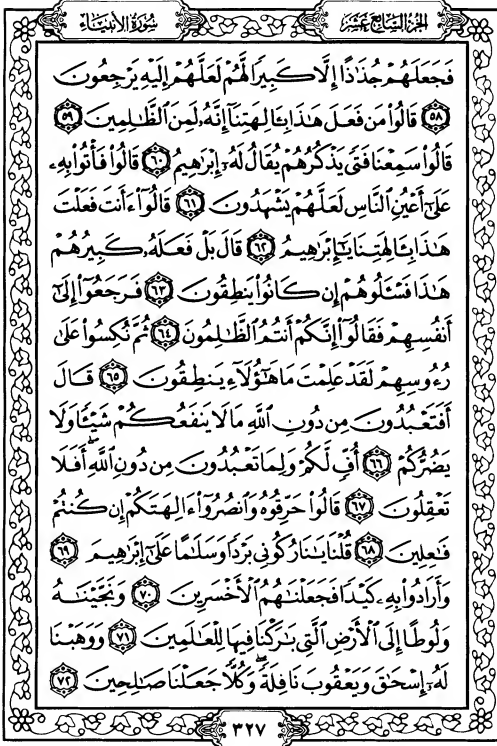 سُورَةُ الأَنبِيَاء
الجُزْءُ السَّابِعَ عَشَر
فَجَعَلَهُمْ جُذَٰذًا إِلَّا كَبِيرًا لَّهُمْ لَعَلَّهُمْ إِلَيْهِ يَرْجِعُونَ
٥٨ قَالُوا۟ مَن فَعَلَ هَٰذَا بِـَٔالِهَتِنَآ إِنَّهُۥ لَمِنَ ٱلظَّٰلِمِينَ ٥٩
قَالُوا۟ سَمِعْنَا فَتًى يَذْكُرُهُمْ يُقَالُ لَهُۥٓ إِبْرَٰهِيمُ ٦٠ قَالُوا۟ فَأْتُوا۟ بِهِۦ
عَلَىٰٓ أَعْيُنِ ٱلنَّاسِ لَعَلَّهُمْ يَشْهَدُونَ ٦١ قَالُوٓا۟ ءَأَنتَ فَعَلْتَ
هَٰذَا بِـَٔالِهَتِنَا يَٰٓإِبْرَٰهِيمُ ٦٢ قَالَ بَلْ فَعَلَهُۥ كَبِيرُهُمْ
هَٰذَا فَسْـَٔلُوهُمْ إِن كَانُوا۟ يَنطِقُونَ ٦٣ فَرَجَعُوٓا۟ إِلَىٰٓ
أَنفُسِهِمْ فَقَالُوٓا۟ إِنَّكُمْ أَنتُمُ ٱلظَّٰلِمُونَ ٦٤ ثُمَّ نُكِسُوا۟ عَلَىٰ
رُءُوسِهِمْ لَقَدْ عَلِمْتَ مَا هَٰٓؤُلَآءِ يَنطِقُونَ ٦٥ قَالَ
أَفَتَعْبُدُونَ مِن دُونِ ٱللَّهِ مَا لَا يَنفَعُكُمْ شَيْـًٔا وَلَا
يَضُرُّكُمْ ٦٦ أُفٍّ لَّكُمْ وَلِمَا تَعْبُدُونَ مِن دُونِ ٱللَّهِ ۖ أَفَلَا
تَعْقِلُونَ ٦٧ قَالُوا۟ حَرِّقُوهُ وَٱنصُرُوٓا۟ ءَالِهَتَكُمْ إِن كُنتُمْ
فَٰعِلِينَ ٦٨ قُلْنَا يَٰنَارُ كُونِى بَرْدًا وَسَلَٰمًا عَلَىٰٓ إِبْرَٰهِيمَ ٦٩
وَأَرَادُوا۟ بِهِۦ كَيْدًا فَجَعَلْنَٰهُمُ ٱلْأَخْسَرِينَ ٧٠ وَنَجَّيْنَٰهُ
وَلُوطًا إِلَى ٱلْأَرْضِ ٱلَّتِى بَٰرَكْنَا فِيهَا لِلْعَٰلَمِينَ ٧١ وَوَهَبْنَا
لَهُۥٓ إِسْحَٰقَ وَيَعْقُوبَ نَافِلَةً ۖ وَكُلًّا جَعَلْنَا صَٰلِحِينَ ٧٢
٣٢٧